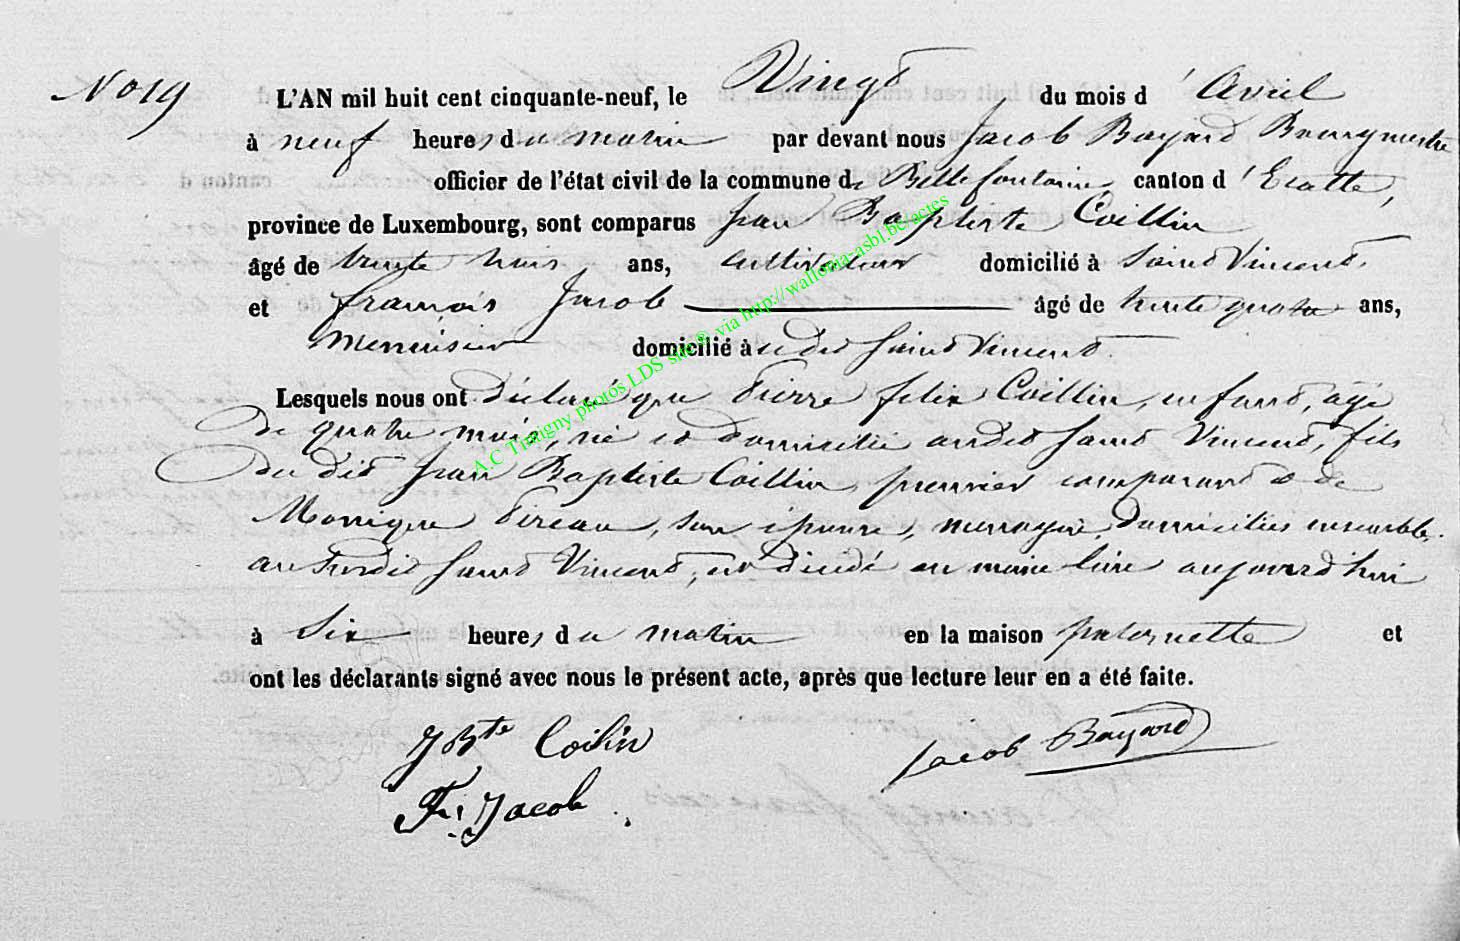 No 19
L'AN mil huit cent cinquante-neuf, le Vingt du mois d' Avril
à neuf heures du matin par devant nous Jacob Bayard Bourgmestre
officier de l'état civil de la commune de Bellefontaine canton d'Etalle,
province de Luxembourg, sont comparus Jean Baptiste Coillin
âgé de trente trois ans, cultivateur domicilié à Saint Vincent
et françois Jacob âgé de trente quatre ans,
menuisier domicilié à u dit Saint Vincent.
Lesquels nous ont déclaré que Pierre felix Coillin, enfant, âgé
de quatre mois, né et domicilié audit Saint Vincent, fils
du dit Jean Baptiste Coillin premier comparant et de
Monique Pireau, son épouse, menagère, domiciliés ensemble
au susdit Saint Vincent, est décédé en main lieu aujourd'hui
à Six heures du matin en la maison paternelle et
ont les déclarants signé avec nous le présent acte, après que lecture leur en a été faite.
J Bte Coilin
Jacob Bayard
Fs Jacob
A.C Tintigny photos LDS site © via http://wallonia-asbl.be/actes